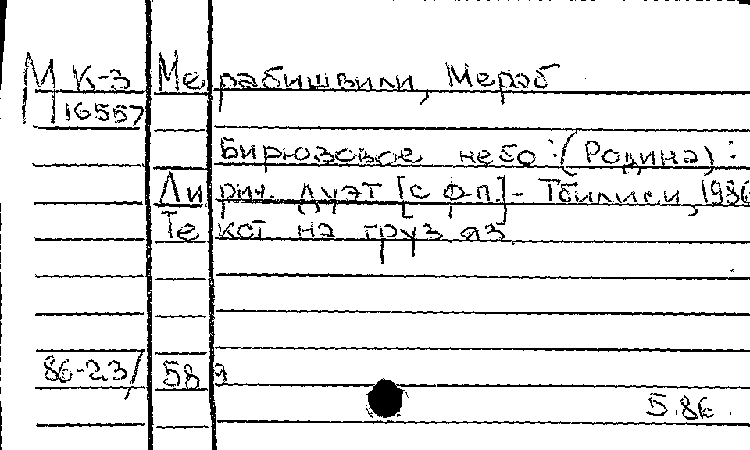 М К-3 Мерабишвили, Мераб
16557
Бирюзовое небо : (Родина) :
Лирич. дуэт [с ф-п.] - Тбилиси, 1986
Текст на груз яз.
86-23/589
5.86.